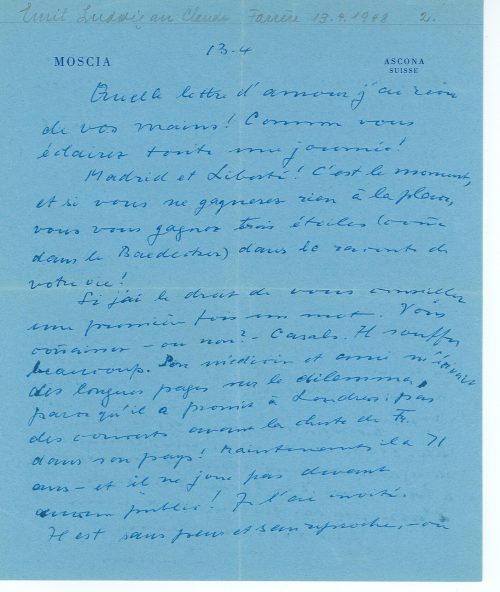 Emil Ludwig an Claude Farrère 13.4.1948 2.
13.4
MOSCIA
ASCONA
SUISSE
Quelle lettre d'amour j'ai
de vos mains! Comme vous
éclairez toute ma journée!
Madrid et Liberté! C'est le moment,
et si vous ne gagnerez rien à la place,
vous vous gagnez trois étoiles (comme
dans le Baedecker) dans le de
votre vie!
Si j'ai le droit de vous conseiller
une première fois un mot. Vous
connaissez - ou non? - Casals. Il souffre
beaucoup. Son médecin et ami m'
des longues pages sur le dilemma,
parce qu'il a promis à Londres: pas
des concerts avant la chute de Fr.
dans son pays! Maintenant il a 71
ans - et il ne joue pas devant
aucun public! Je l'ai invité.
Il est sans peur et sans reproche, - ou